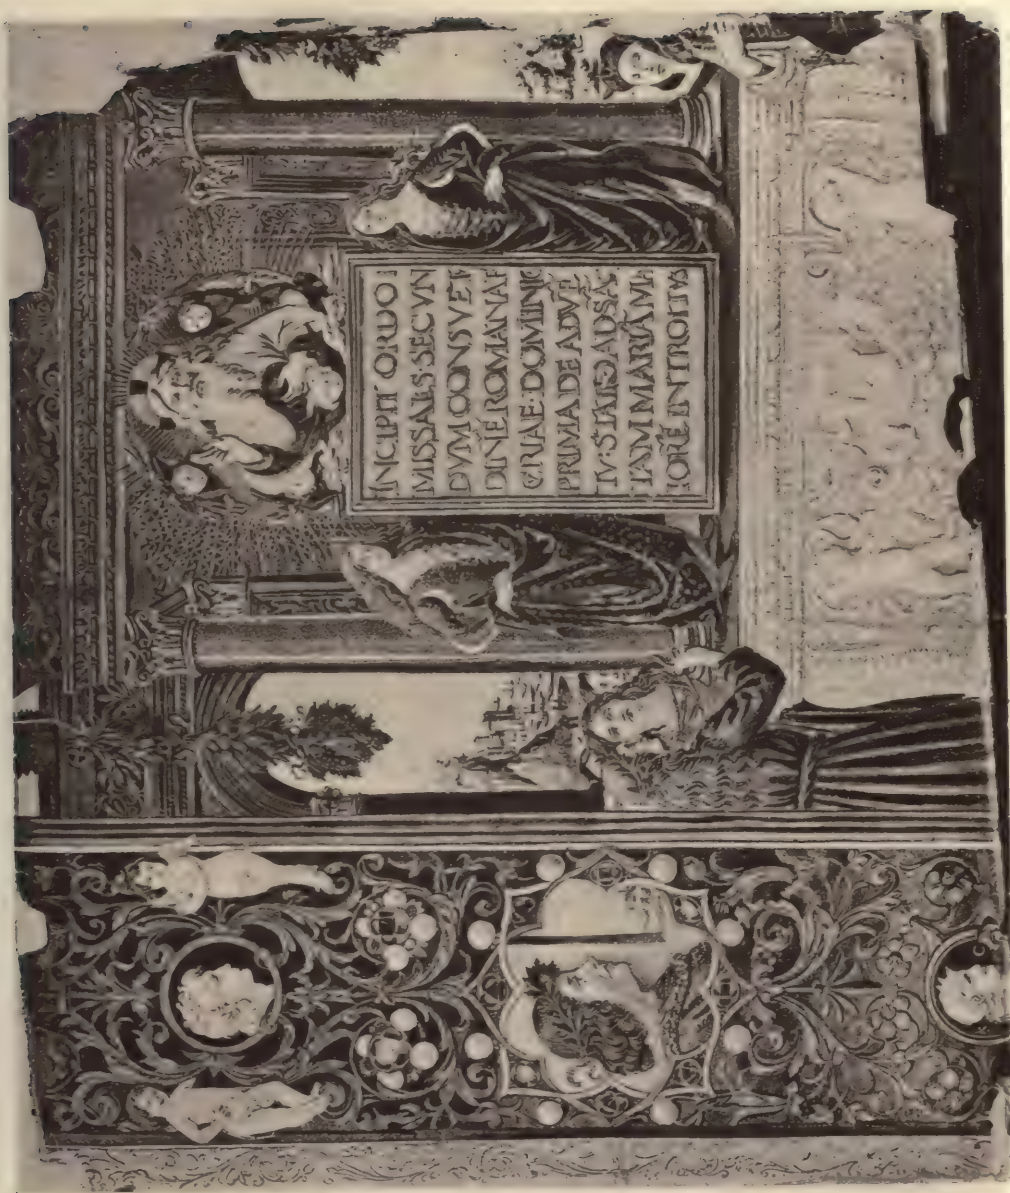 INCIPIT ORDO I
MISSALIS·SECVN
DVM CONSVET
DINE ROMANAE
CVRIAE·DOMINIC
PRIMA DE ADVĒ
TV·STATIO AD SĀC
TAM MARIĀ MA
IORĒ INTROITVS